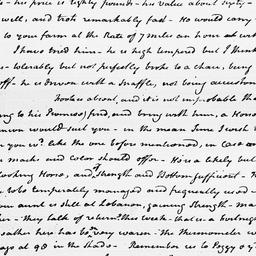 - his price is eighty pounds - his value about sixty -
well, and trots remarkably fast - He would carry
to your farm at the Rate of 7 miles an hour at with
I have tried him - he is high tempered but I think
- tolerably but not perfectly broke to a chair, being
off - he is Driven with a snaffle, not being accustom
Fookes about, and it is not improbable tha
ing to his Promise) find, and bring with him, a Horse
would suit you - in the mean time I wish t
you wd like the one before mentioned, in case
mark and color should offer - He is a likely but
looking Horse, and Strength and Bottom sufficient -
to be temperately managed and frequently used -
our aunt is still at Lebanon, gaining Strength - Ma
her - they talk of return this week - that is a fortnigh
eather here has been very warm - The thermometer w
ago at 98 in the shade - Remember us to Peggy